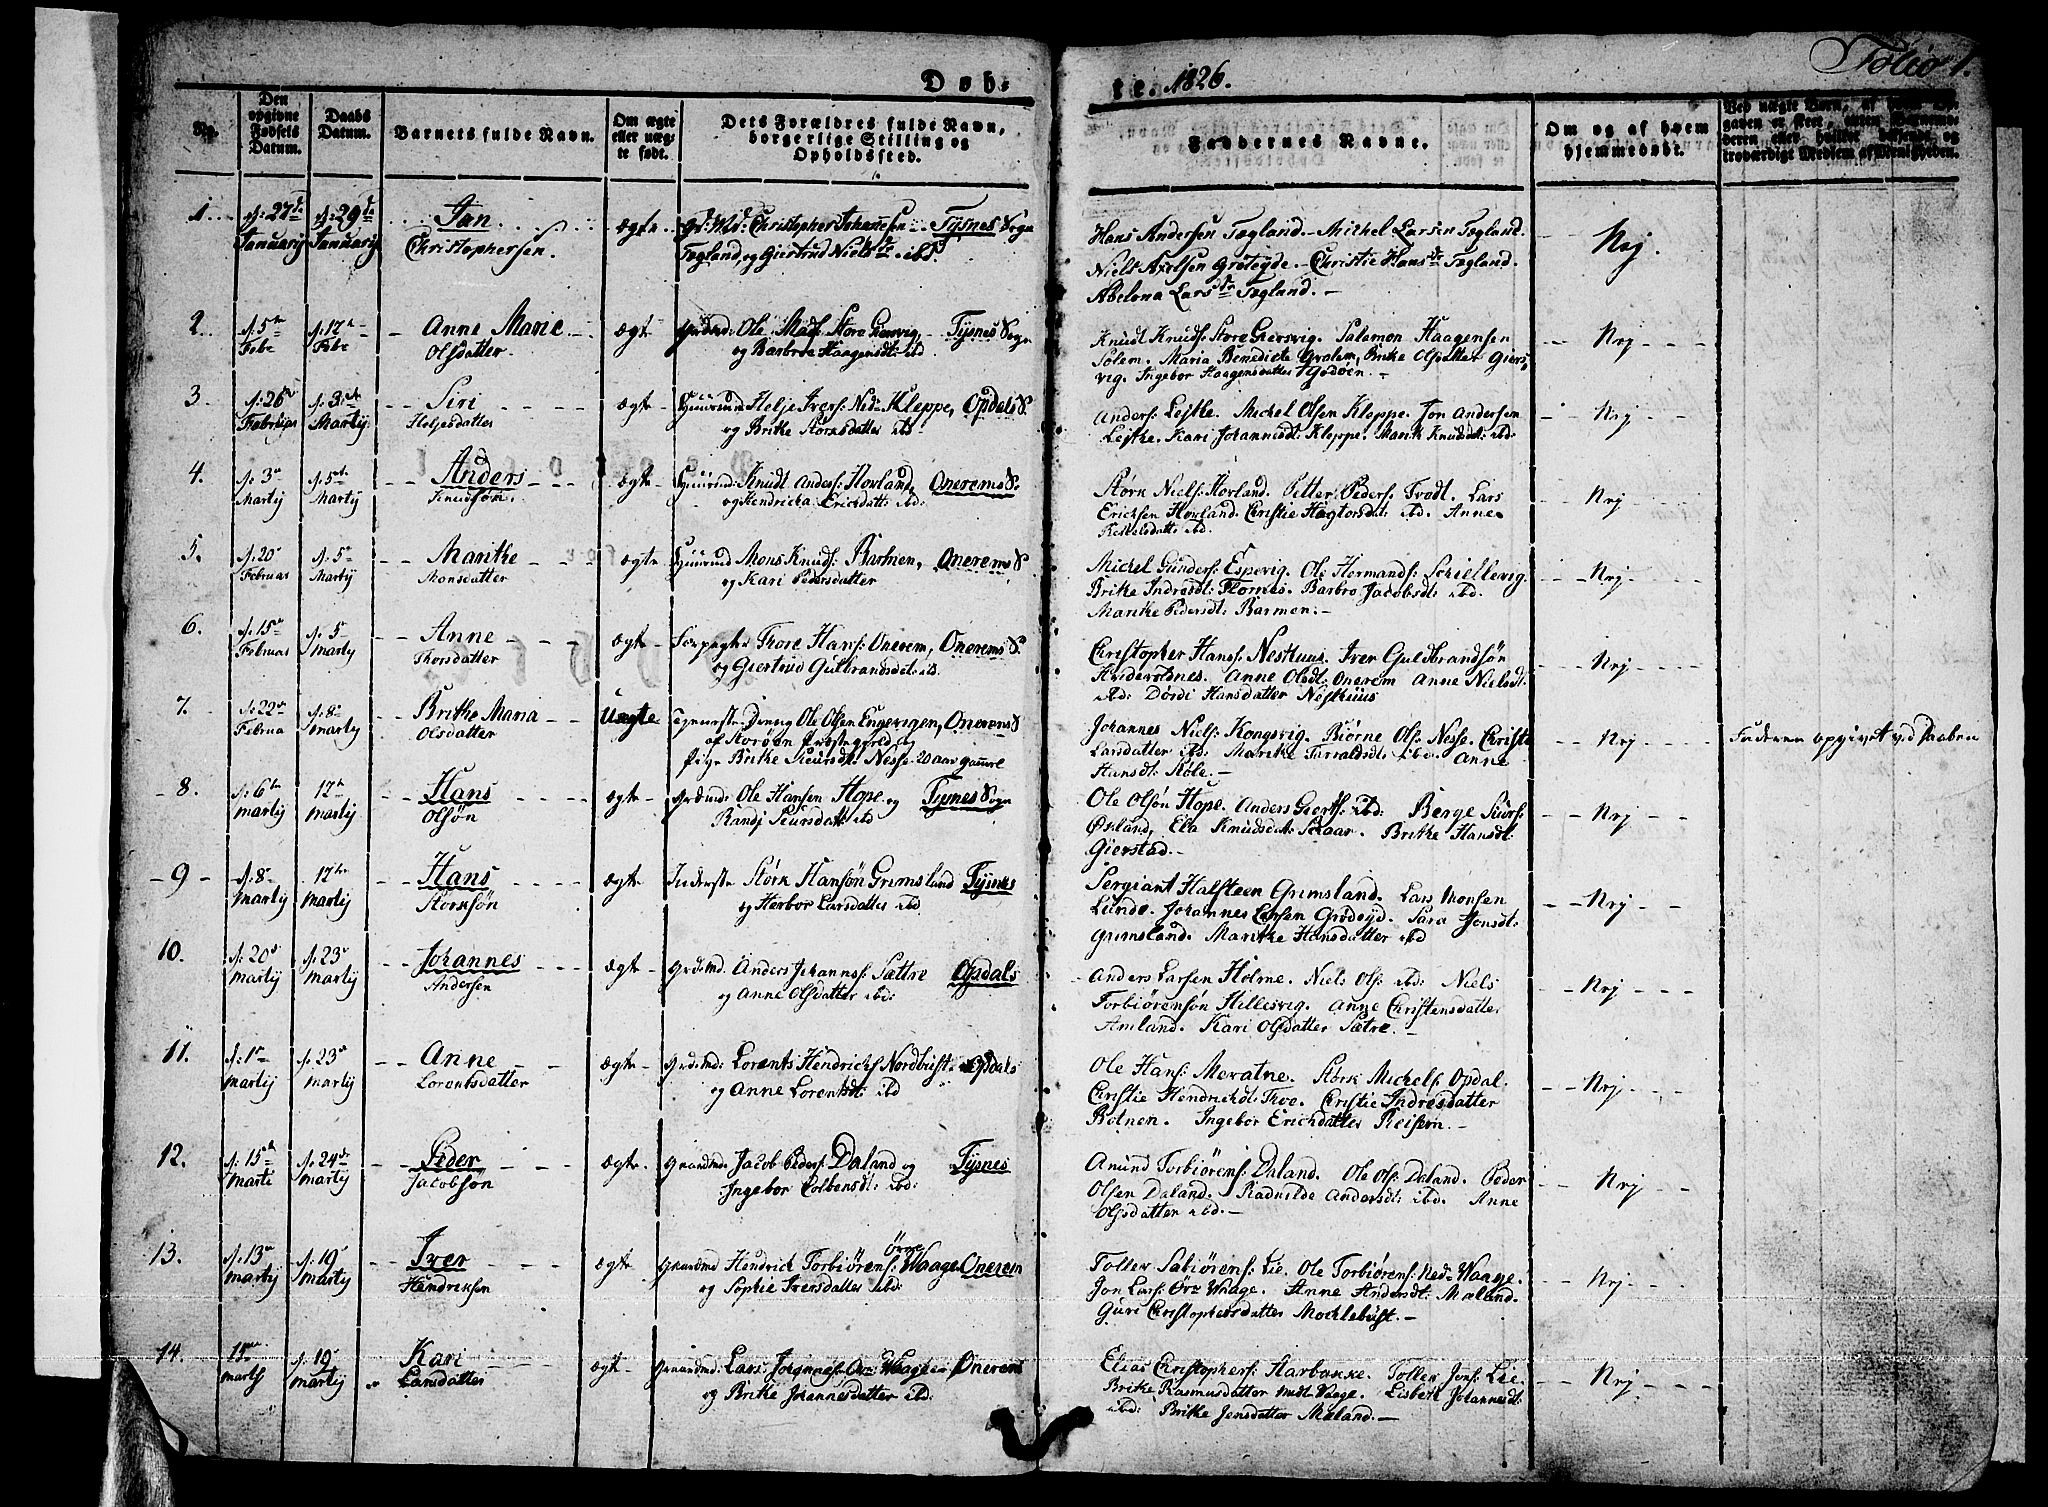 Folio 1.
Døb-
te. 1826.
No.
Den opgivne Fødsels Datum.
Daabs Datum.
Barnets fulde Navn.
Om ægte eller uægte født.
Dets Forældres fulde Navn, borgerlige Stilling og Opholdssted.
Faddernes Navne.
Om og af hvem hjemmedøbt.
1. d: 27de Januarij d: 29de Januarij Jan Christophersen. ægte Christopher Johannesen Tysnes Sogn
Tegland, og Giertrud Nielsdr. ibd.
Hans Andersen Tegland. Michel Larsen Tegland.
Niels Axelsen Grøteyde. Christie Hansdr Tegland.
Abelona Larsdr Tegland.
Nej.
2. d: 5te Febr d: 12te Febr Anne Marie Olsdatter. ægte Ole Mads: Store Giersvig, Tysnes Sogn
og Barbroe Haagensdt: ibd.
Knudt Knuds: Store Giersvig. Salamon Haagensen
Solem. Maria Benedicte Gralem, Brite Olsdatter Giers-
vig. Ingebor Haagensdatter Godøen.
Nej
3. d: 26de Februar d: 3de Martij Siri Heljesdatter ægte Helje Ivers: Ned: Kleppe, Opdals S.
og Brite Størksdatter ibd
Anders: Lejte. Michel Olsen Kleppe. Jon Andersen
Lejte. Kari Johannesdt: Kleppe. Marite Knudsdt: ibd:
Nej
4. d: 3de Martij d: 5te Martij Anders Knudsøn. ægte Knudt Anders: Hovland, Onerems S:
og Hendricka Ericksdatt: ibd:
Størk Niels: Hovland. Petter Peders: Trodt. Lars
Ericksen Hovland. Christie Hagtorsdat: ibd. Anne
Ketelsdatt: ibd.
Nej
5. d: 20de Februar d: 5te Martij Marithe Monsdatter ægte Mons Knuds: Barmen, Onerems S
og Kari Pedersdatter
Michel Gunders: Espevig. Ole Hermands: Schiellevig.
Brite Indresdt: Flornes. Barbro Jacobsdt: ibd.
Marite Pedersdt: Barmen.
Nej
6. d: 15de Februar d: 5 Martij Anne Thorsdatter ægte Forpagter Thore Hans: Onerem, Onerems S.
og Giertrud Gulbrandsdat: ibd.
Christopher Hans: Neshuus. Iver Guldbrandsøn
Hindervldnes. Anne Olsdt: Onerem Anne Nielsdt:
ibd: Dordi Hansdatter Neshuus
Nej
7. d: 22de Februa d: 8 Martij Brithe Maria Olsdatter Uægte Dreng Ole Olsen Engevigen, Onerems S
af Storøen Præstegield og
Pige Brite Siursdt: Nesse 20 aar gamel
Johannes Niels: Kongsvig. Biørne Ols: Nesse. Christi
Larsdatter ibd: Marite Tarraldsdt: ibd. Anne
Hansdt: Kole.
Nej Faderen opgivet ved Daaben
8. d: 6te Martij 12te Martij Hans Olsøn ægte Ole Hansen Hope og Tysnes Sogn
Randj Siursdatt: ibd
Ole Olsøn Hope. Anders Gierts: ibd: Berge Siurs:
Øvland, Ela Knudsdat: Skaar. Brite Hansdt:
Gierstad.
Nej
9 d: 8 Martij 12te Martij Hans Størksøn ægte Inderste Størk Hansøn Grimsland Tysnes
og Herbor Larsdatter ibd
Sergiant Halsteen Grimsland. Lars Monsen
Lunde. Johannes Larsen Grødeyd. Sara Jonsdt:
Grimsland. Marithe Hansdatter ibd
Nej
10. d: 20de Martij d: 23 Martij Johannes Andersen ægte Anders Johannes: Sættre Opdals
og Anne Olsdatter ibd:
Anders Larsen Holme. Niels Ols: ibd: Niels
Torbiørensøn Hillesvig. Anne Christensdatter
Amland. Kari Olsdatter Sætre.
Nej
11. d: 1 Martij d: 23 Martij Anne Lorentsdatter ægte Lorents Hendricks: Nordbust Opdals
og Anne Lorentsdt: ibd
Ole Hans: Meratne. Størk Michels: Opdal
Christie Hendricksdt: Thoe. Christie Indresdatter
Botnen. Ingebor Erichdatter Reisem.
Nej
12. d: 15de Marti d: 24de Martij Peder Jacobsøn ægte Jacob Peders: Daland og Tysnes
Ingebor Colbensdt: ibd:
Amund Torbiørens: Daland. Ole Ols: Daland. Peder
Olsen Daland. Radnilde Andersdt: ibd. Anne
Olsdatter ibd.
Nej
13. d: 13de Martij d: 19 Martij Iver Hendriksen ægte Hendrick Torbiørens: Øvre Waage Onerem
og Sophie Iversdatter ibd:
Toller Sabiørens: Lie. Ole Torbiørens: Ned: Waage.
Jon Lars: Øvr Waage. Anne Andersdt: Mæland.
Guri Christophersdatter Mochlebust.
Nej
14. 15de Marts d: 19 Martij Kari Larsdatter ægt Lars Johannes: Øvr Waage Onerem
og Brite Johannesdatter ibd.
Elias Christophers: Harbakke. Toller Jons: Lie.
Brite Rasmusdatter nedt Vaage. Lisbeth Johannesdt:
ibd: Brite Jensdatter Mæland.
Nej